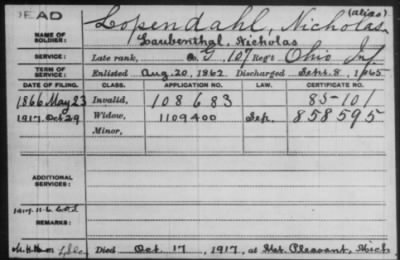 DEAD
Lopendahl, Nicholas (alias)
NAME OF SOLDIER: Laubenthal, Nicholas
SERVICE: Late rank, G, 107 Reg't Ohio Inf
TERM OF SERVICE: Enlisted Aug. 20, 1862 Discharged Sept. 8, 1865
DATE OF FILING. CLASS. APPLICATION NO. LAW. CERTIFICATE NO.
1866 May 23 Invalid, 108683 85-101
1917. Oct 29 Widow, 1109400 858595
Minor,
ADDITIONAL SERVICES:
REMARKS:
Died Oct. 17, 1917, at Mt. Pleasant, Mich